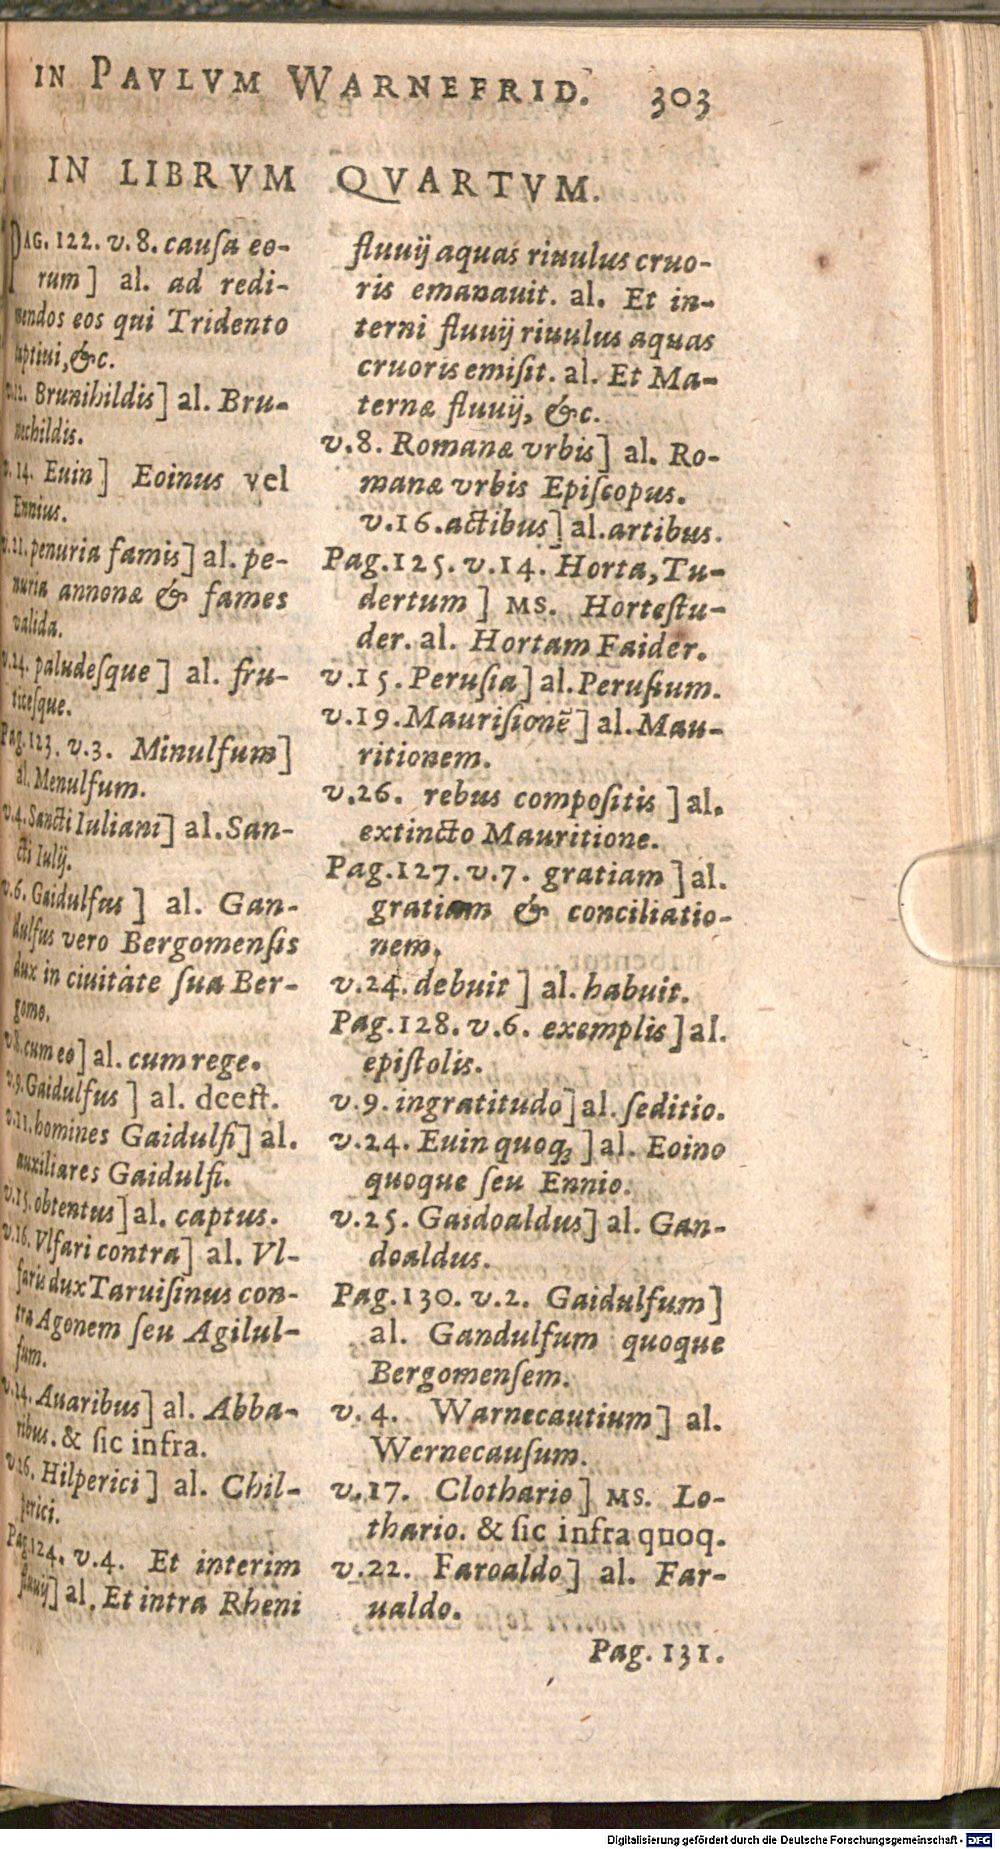 IN PAVLVM WARNEFRID. 303
IN LIBRVM QVARTVM.
PAG. 122. v. 8. causa eo-
rum] al. ad redi-
mendos eos qui Tridento
captiui, &c.
v.12. Brunihildis] al. Bru-
nechildis.
v. 14. Euin] Eoinus vel
Ennius.
v.21. penuria famis] al. pe-
nuria annonæ & fames
valida.
v.24. paludesque] al. fru-
ticesque.
Pag. 123. v.3. Minulfum]
al. Menulfum.
v.4. Sancti Iuliani] al. San-
cti Iulij.
v.6. Gaidulfus] al. Gan-
dulfus vero Bergomensis
dux in ciuitate sua Ber-
gomo.
v.8. cum eo] al. cum rege.
v.9. Gaidulfus] al. deest.
v.11. homines Gaidulfi] al.
auxiliares Gaidulfi.
v.15. obtentus] al. captus.
v.16. Vlfari contra] al. Vl-
faris dux Taruisinus con-
tra Agonem seu Agilul-
fum.
v.24. Auaribus] al. Abba-
ribus. & sic infra.
v.26. Hilperici] al. Chil-
perici.
Pag. 124. v.4. Et interim
fluuij] al. Et intra Rheni
fluuij aquas riuulus cruo-
ris emanauit. al. Et in-
terni fluuij riuulus aquas
cruoris emisit. al. Et Ma-
ternæ fluuij, &c.
v.8. Romanæ vrbis] al. Ro-
manæ vrbis Episcopus.
v.16. actibus] al. artibus.
Pag. 125. v.14. Horta, Tu-
dertum] MS. Hortestu-
der. al. Hortam Faider.
v.15. Perusia] al. Perusium.
v.19. Maurisionẽ] al. Mau-
ritionem.
v.26. rebus compositis] al.
extincto Mauritione.
Pag. 127. v.7. gratiam] al.
gratiam & conciliatio-
nem.
v.24. debuit] al. habuit.
Pag. 128. v.6. exemplis] al.
epistolis.
v.9. ingratitudo] al. seditio.
v.24. Euin quoq;] al. Eoino
quoque seu Ennio.
v.25. Gaidoaldus] al. Gan-
doaldus.
Pag. 130. v.2. Gaidulfum]
al. Gandulfum quoque
Bergomensem.
v. 4. Warnecautium] al.
Wernecausum.
v.17. Clothario] MS. Lo-
thario. & sic infra quoq.
v.22. Faroaldo] al. Far-
ualdo.
Pag. 131.
Digitalisierung gefördert durch die Deutsche Forschungsgemeinschaft - DFG